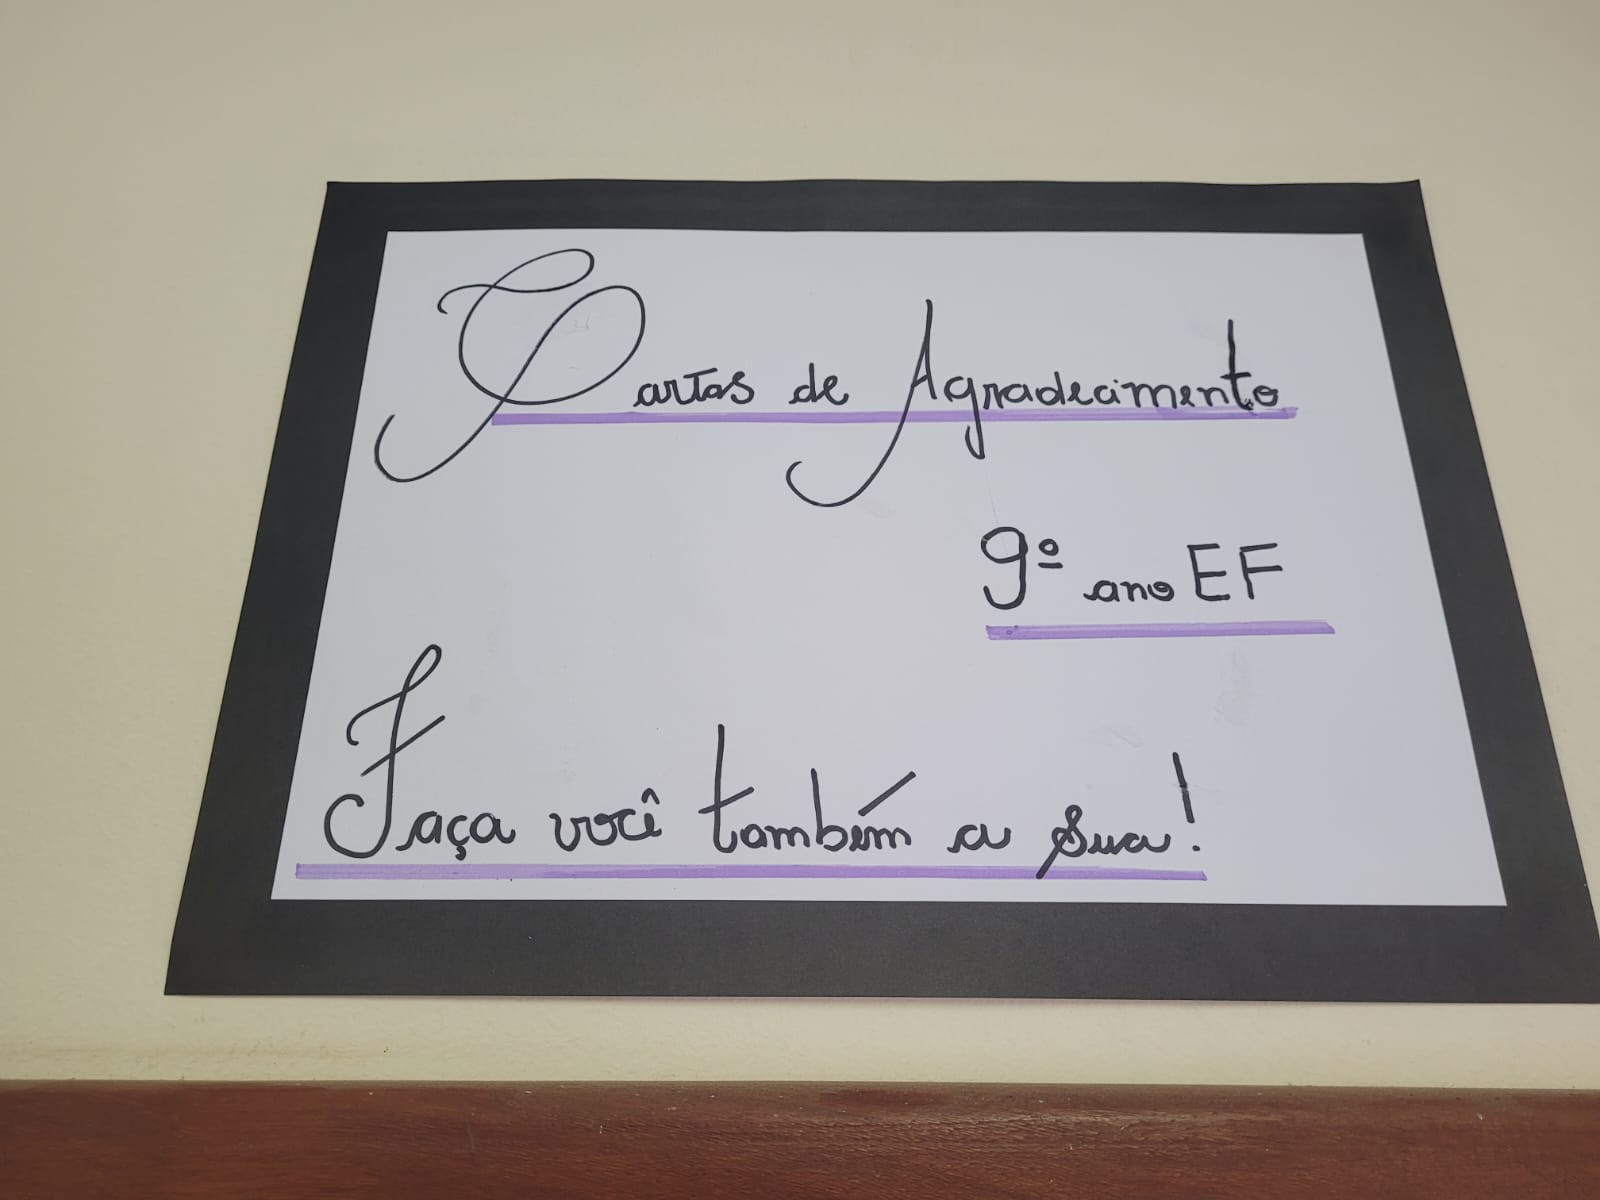 Cartas de Agradecimento
9º ano EF
Faça você também a sua!